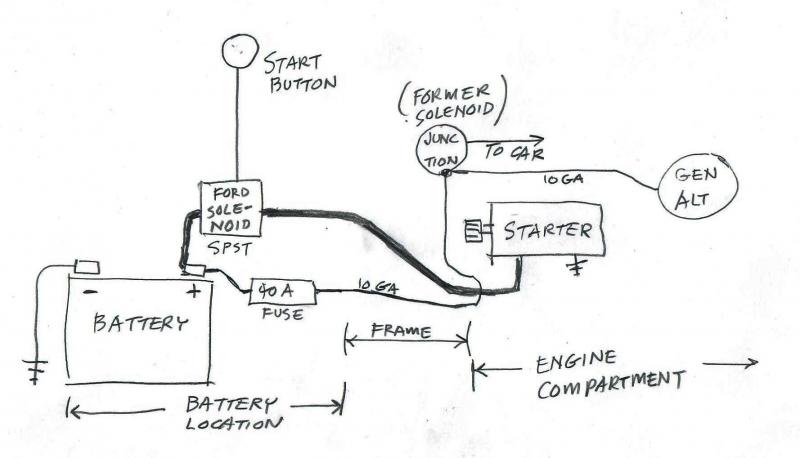 START
BUTTON
(FORMER
SOLENOID)
JUNC
TION
TO CAR
10 GA
GEN
ALT
FORD
SOLE-
NOID
SPST
STARTER
- +
BATTERY
40 A
FUSE
10 GA
FRAME
ENGINE
COMPARTMENT
BATTERY
LOCATION